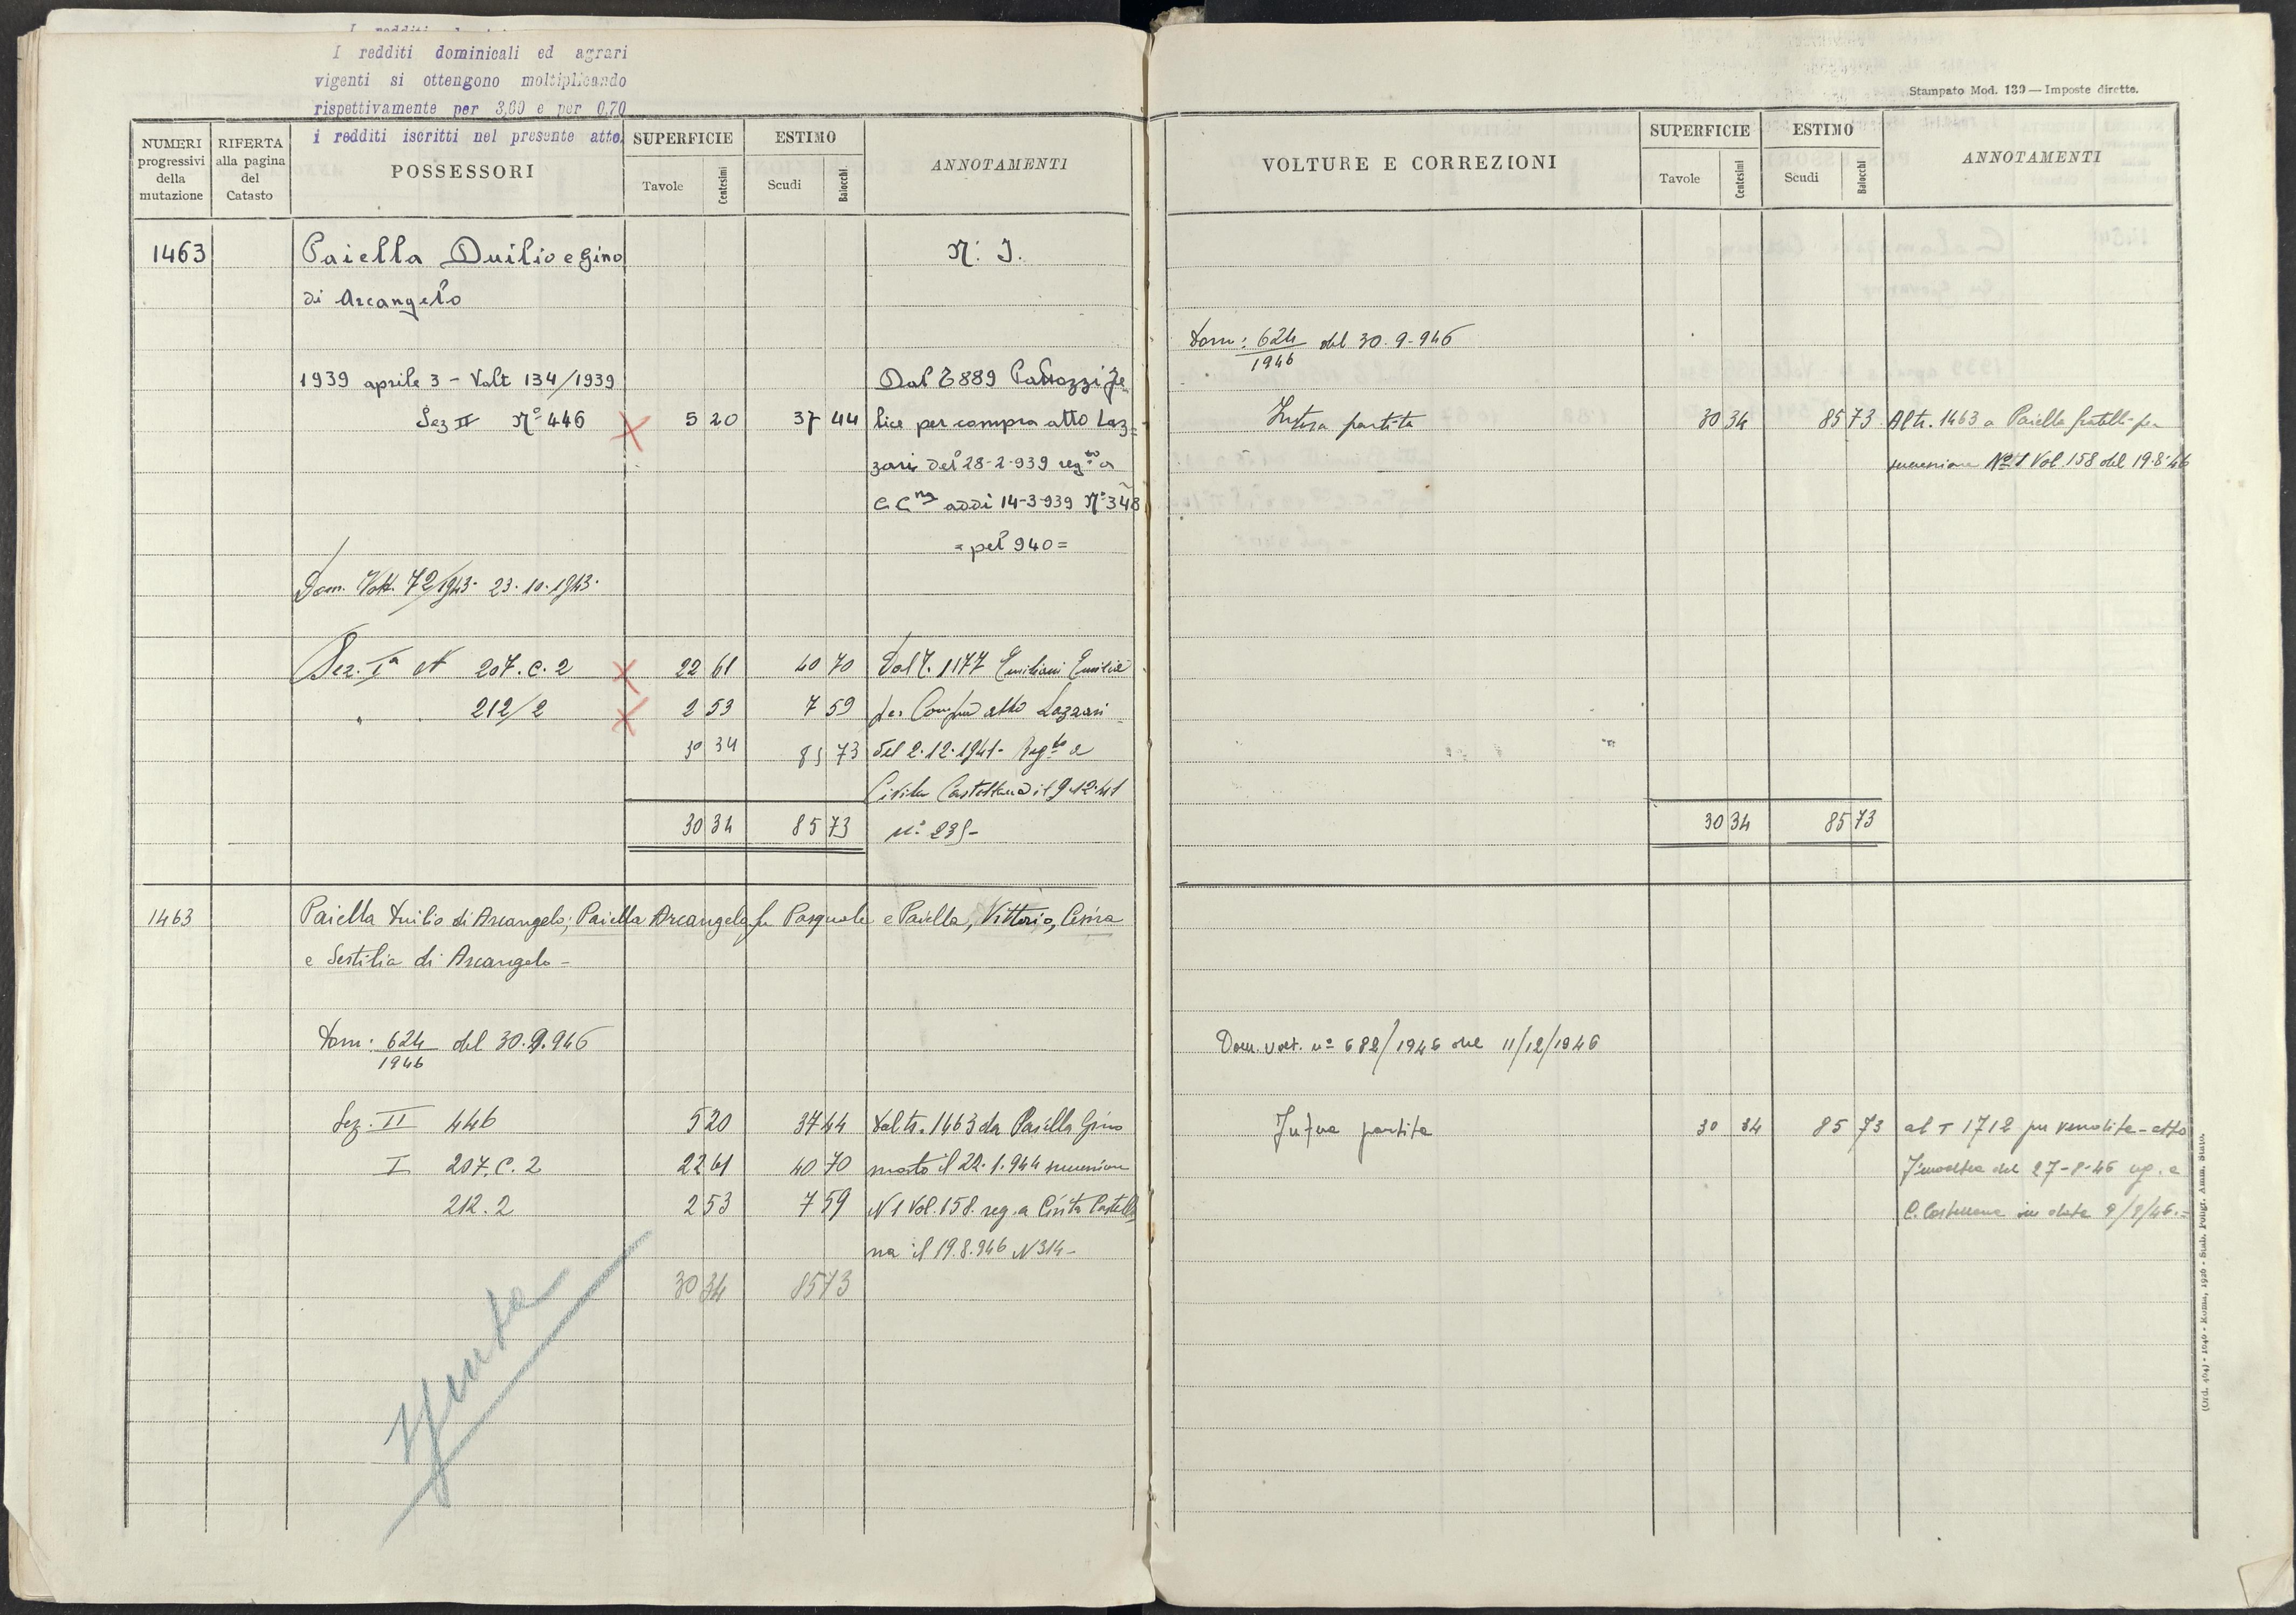 I redditi dominicali ed agrari
vigenti si ottengono moltiplicando
rispettivamente per 3,60 e per 0,70
i redditi iscritti nel presente atto.
NUMERI progressivi della mutazione
RIFERTA alla pagina del Catasto
POSSESSORI
SUPERFICIE
Tavole
Centesimi
ESTIMO
Scudi
Baiocchi
ANNOTAMENTI
1463
Paiella Duilio e Gino
N. I.
di Arcangelo
1939 aprile 3 - Volt 134/1939
Dal T 889 Fe
Sez II N° 446 5 20 37 44 lice per compra atto Laz=
zari del 28-2-939 reg.to a
C. C.na addì 14-3-939 N° 348
= pel 940 =
Dom. Volt. 72/1943 - 23.10.1943.
Sez. Ia N 207. C. 2 22 61 40 70 Dal T. 1177 Emiliani Emilia
" . 212/2 2 53 7 59 per Compra atto Lazzari
30 34 85 73 del 2.12.1941 - Reg.to a
Civita Castellana il 9.12.41
30 34 85 73 n° 235-
1463
Paiella Duilio di Arcangelo; Paiella Arcangelo fu Pasquale e Paiella, Vittorio,
e Sestilia di Arcangelo -
Dom: 624/1946 del 30.9.946
Sez. II 446 5 20 37 44 Dal tr. 1463 da Paiella Gino
I 207. C. 2 22 61 40 70 morto il 22.1.944 successione
212.2 2 53 7 59 N 1 Vol. 158. reg. a Civita Castella
na il 19.8.946 N 314 -
30 34 85 73
Stampato Mod. 139 — Imposte dirette.
VOLTURE E CORREZIONI
SUPERFICIE
Tavole
Centesimi
ESTIMO
Scudi
Baiocchi
ANNOTAMENTI
Dom: 624/1946 del 30.9.946
Intera partita 30 34 85 73 Al tr. 1463 a Paiella fratelli per
successione N° 1 Vol. 158 del 19.8.46
30 34 85 73
Dom. Volt. n° 682/1946 del 11/12/1946
Intera partita 30 34 85 73 al T 1712 per vendita - atto
del 27-8-46 reg. a
C. Castellana in data 9/9/46.=
(Ord. 464) - 1040 - Roma, 1926 - Stab. Poligr. Amm. Stato.